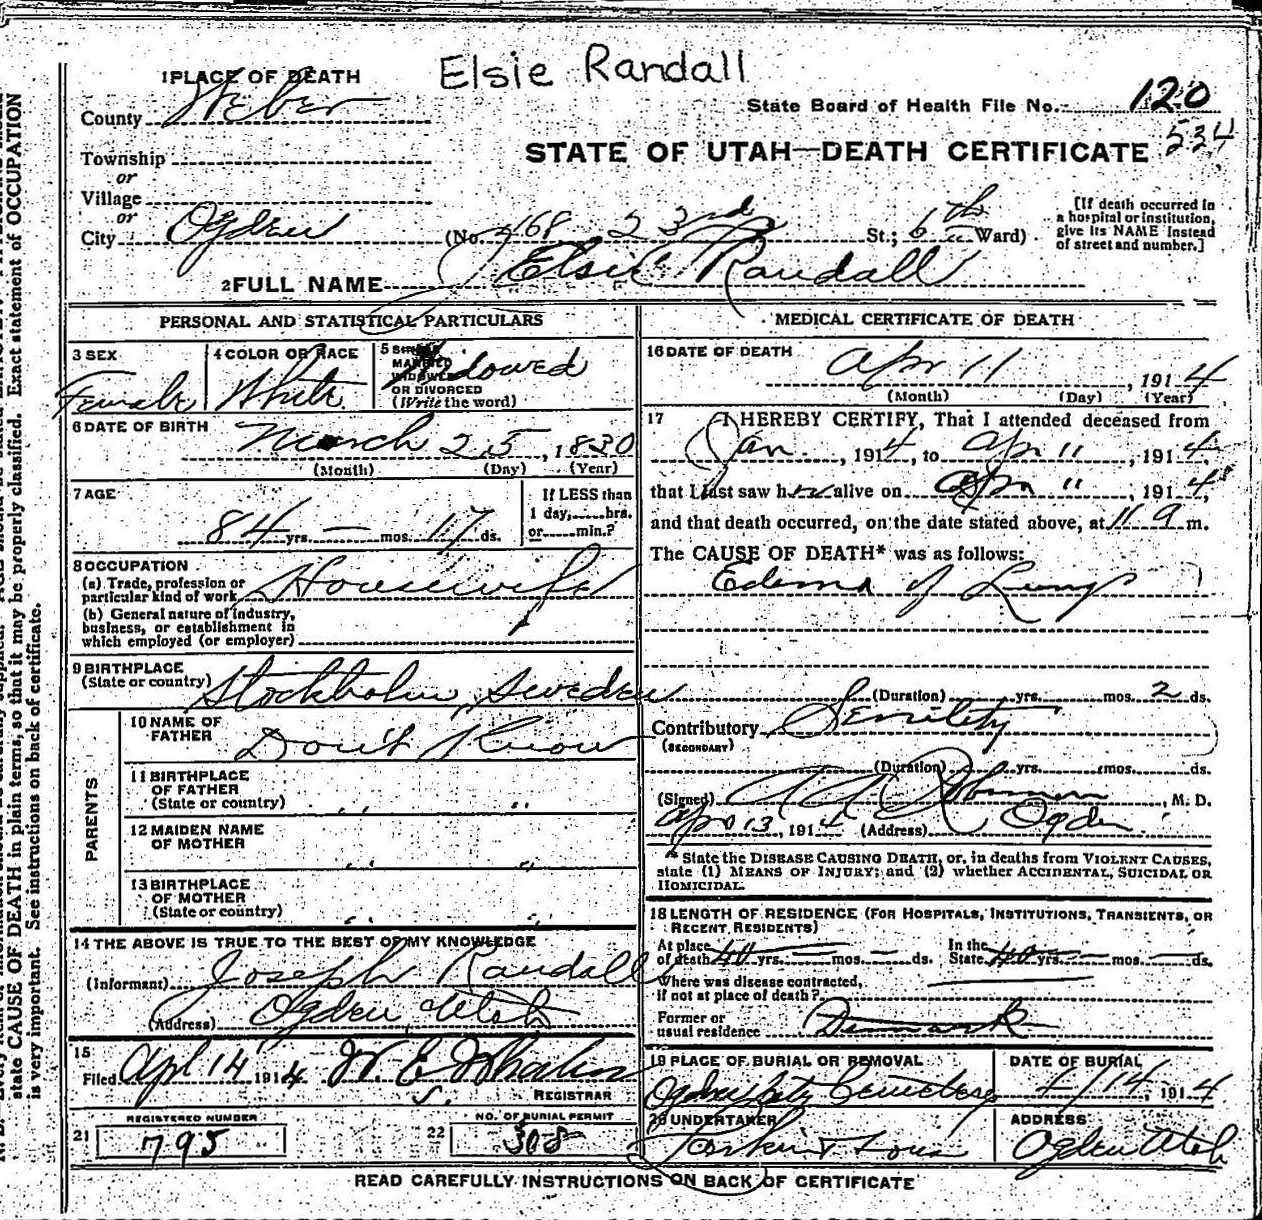 Elsie Randall
1 PLACE OF DEATH
State Board of Health File No. 120
County Weber
534
STATE OF UTAH—DEATH CERTIFICATE
Township
or
Village
or
City Ogden (No. 468 23rd St.; 6th Ward)
[If death occurred in a hospital or institution, give its NAME instead of street and number.]
2 FULL NAME Elsie Randall
PERSONAL AND STATISTICAL PARTICULARS
3 SEX Female
4 COLOR OR RACE White
5 SINGLE MARRIED WIDOWED OR DIVORCED (Write the word) Widowed
6 DATE OF BIRTH March 25, 1830
(Month) (Day) (Year)
7 AGE 84 yrs. — mos. 17 ds.
If LESS than 1 day, hrs. or min.?
8 OCCUPATION
(a) Trade, profession or particular kind of work Housewife
(b) General nature of industry, business, or establishment in which employed (or employer)
9 BIRTHPLACE (State or country) Stockholm, Sweden
PARENTS
10 NAME OF FATHER Don't Know
11 BIRTHPLACE OF FATHER (State or country) " "
12 MAIDEN NAME OF MOTHER " "
13 BIRTHPLACE OF MOTHER (State or country) " "
14 THE ABOVE IS TRUE TO THE BEST OF MY KNOWLEDGE
(Informant) Joseph Randall
(Address) Ogden Utah
15
Filed Apl 14 1914 W. E. Whalen
REGISTRAR
REGISTERED NUMBER
21 795
NO. OF BURIAL PERMIT
22 308
MEDICAL CERTIFICATE OF DEATH
16 DATE OF DEATH Apr 11, 1914
(Month) (Day) (Year)
17 I HEREBY CERTIFY, That I attended deceased from
Jan., 1914, to Apr 11, 1914,
that I last saw her alive on Apr 11, 1914,
and that death occurred, on the date stated above, at 11 9 m.
The CAUSE OF DEATH* was as follows:
Edema of Lungs
(Duration) yrs. mos. 2 ds.
Contributory Senility
(SECONDARY)
(Duration) yrs. mos. ds.
(Signed) , M. D.
Apr 13, 1914 (Address) Ogden
* State the DISEASE CAUSING DEATH, or, in deaths from VIOLENT CAUSES,
state (1) MEANS OF INJURY; and (2) whether ACCIDENTAL, SUICIDAL OR
HOMICIDAL.
18 LENGTH OF RESIDENCE (FOR HOSPITALS, INSTITUTIONS, TRANSIENTS, OR
RECENT RESIDENTS)
At place of death 40 yrs. — mos. — ds. In the State 40 yrs. — mos. — ds.
Where was disease contracted,
if not at place of death?
Former or usual residence Denmark
19 PLACE OF BURIAL OR REMOVAL
Ogden City Cemetery
DATE OF BURIAL
4/14, 1914
20 UNDERTAKER
Larkin & Sons
ADDRESS
Ogden Utah
READ CAREFULLY INSTRUCTIONS ON BACK OF CERTIFICATE
state CAUSE OF DEATH in plain terms, so that it may be properly classified. Exact statement of OCCUPATION
is very important. See instructions on back of certificate.